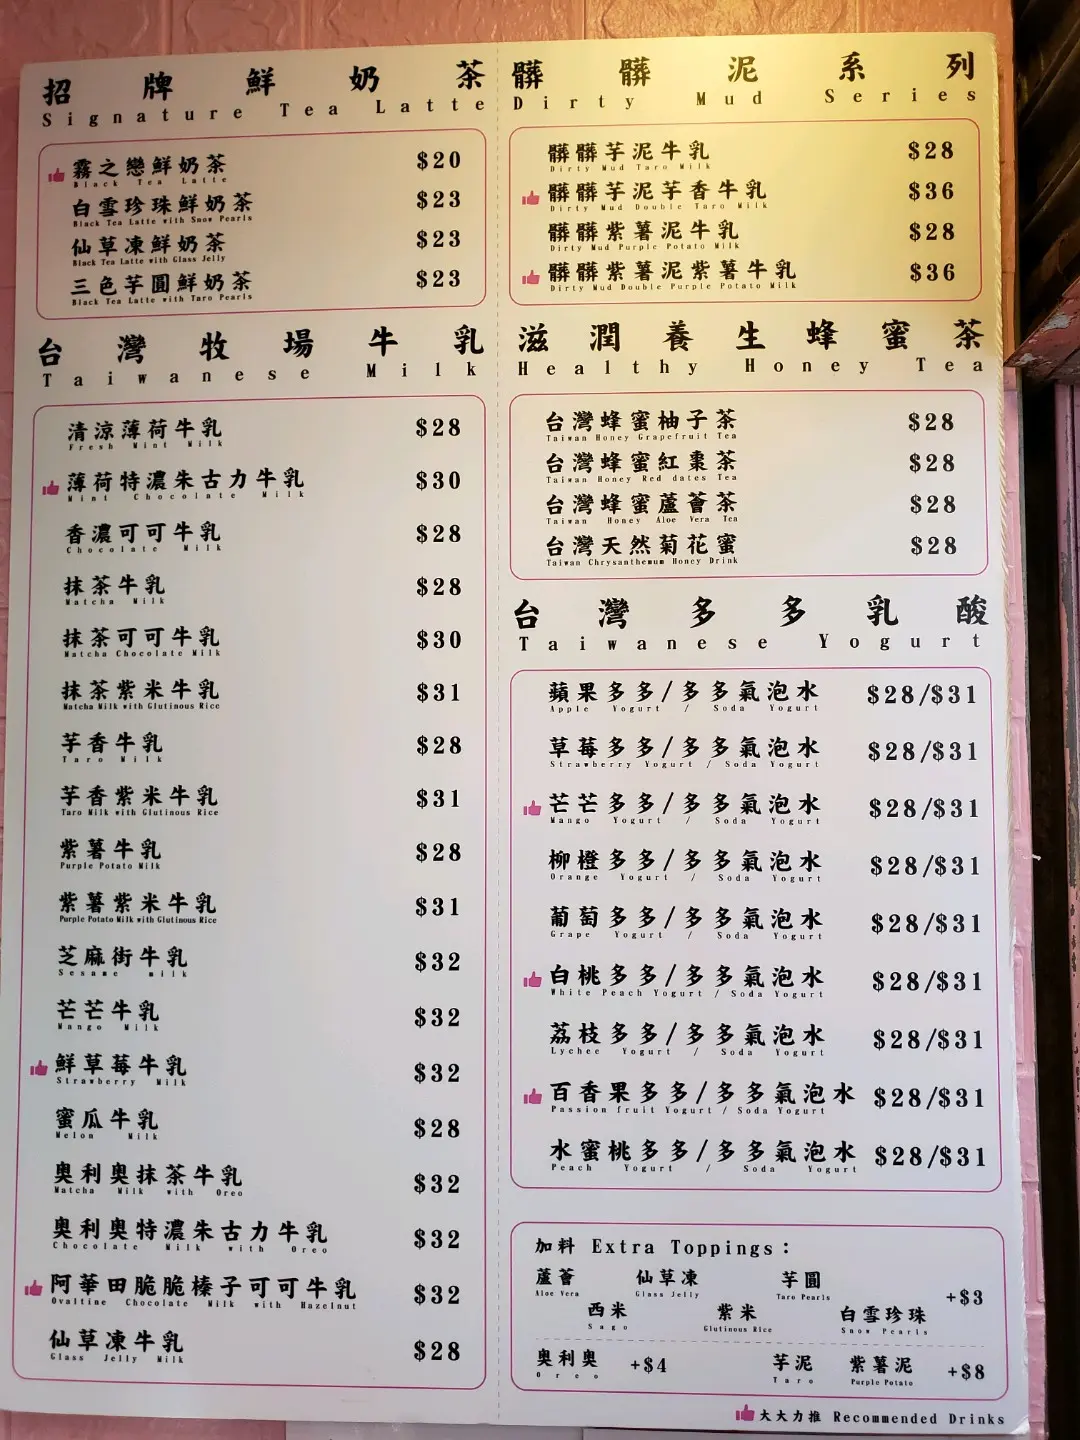 招牌鮮奶茶
Signature Tea Latte
霧之戀鮮奶茶 $20
Black Tea Latte
白雪珍珠鮮奶茶 $23
Black Tea Latte with Snow Pearls
仙草凍鮮奶茶 $23
Black Tea Latte with Glass Jelly
三色芋圓鮮奶茶 $23
Black Tea Latte with Taro Pearls
台灣牧場牛乳
Taiwanese Milk
清涼薄荷牛乳 $28
Fresh Mint Milk
薄荷特濃朱古力牛乳 $30
Mint Chocolate Milk
香濃可可牛乳 $28
Chocolate Milk
抹茶牛乳 $28
Matcha Milk
抹茶可可牛乳 $30
Matcha Chocolate Milk
抹茶紫米牛乳 $31
Matcha Milk with Glutinous Rice
芋香牛乳 $28
Taro Milk
芋香紫米牛乳 $31
Taro Milk with Glutinous Rice
紫薯牛乳 $28
Purple Potato Milk
紫薯紫米牛乳 $31
Purple Potato Milk with Glutinous Rice
芝麻街牛乳 $32
Sesame milk
芒芒牛乳 $32
Mango Milk
鮮草莓牛乳 $32
Strawberry Milk
蜜瓜牛乳 $28
Melon Milk
奧利奧抹茶牛乳 $32
Matcha Milk with Oreo
奧利奧特濃朱古力牛乳 $32
Chocolate Milk with Oreo
阿華田脆脆榛子可可牛乳 $32
Ovaltine Chocolate Milk with Hazelnut
仙草凍牛乳 $28
Glass Jelly Milk
髒髒泥系列
Dirty Mud Series
髒髒芋泥牛乳 $28
Dirty Mud Taro Milk
髒髒芋泥芋香牛乳 $36
Dirty Mud Double Taro Milk
髒髒紫薯泥牛乳 $28
Dirty Mud Purple Potato Milk
髒髒紫薯泥紫薯牛乳 $36
Dirty Mud Double Purple Potato Milk
滋潤養生蜂蜜茶
Healthy Honey Tea
台灣蜂蜜柚子茶 $28
Taiwan Honey Grapefruit Tea
台灣蜂蜜紅棗茶 $28
Taiwan Honey Red dates Tea
台灣蜂蜜蘆薈茶 $28
Taiwan Honey Aloe Vera Tea
台灣天然菊花蜜 $28
Taiwan Chrysanthemum Honey Drink
台灣多多乳酸
Taiwanese Yogurt
蘋果多多/多多氣泡水 $28/$31
Apple Yogurt / Soda Yogurt
草莓多多/多多氣泡水 $28/$31
Strawberry Yogurt / Soda Yogurt
芒芒多多/多多氣泡水 $28/$31
Mango Yogurt / Soda Yogurt
柳橙多多/多多氣泡水 $28/$31
Orange Yogurt / Soda Yogurt
葡萄多多/多多氣泡水 $28/$31
Grape Yogurt / Soda Yogurt
白桃多多/多多氣泡水 $28/$31
White Peach Yogurt / Soda Yogurt
荔枝多多/多多氣泡水 $28/$31
Lychee Yogurt / Soda Yogurt
百香果多多/多多氣泡水 $28/$31
Passion fruit Yogurt / Soda Yogurt
水蜜桃多多/多多氣泡水 $28/$31
Peach Yogurt / Soda Yogurt
加料 Extra Toppings：
蘆薈 仙草凍 芋圓
Aloe Vera Glass Jelly Taro Pearls
+$3
西米 紫米 白雪珍珠
Sago Glutinous Rice Snow Pearls
奧利奧 +$4 芋泥 紫薯泥 +$8
Oreo Taro Purple Potato
大大力推 Recommended Drinks